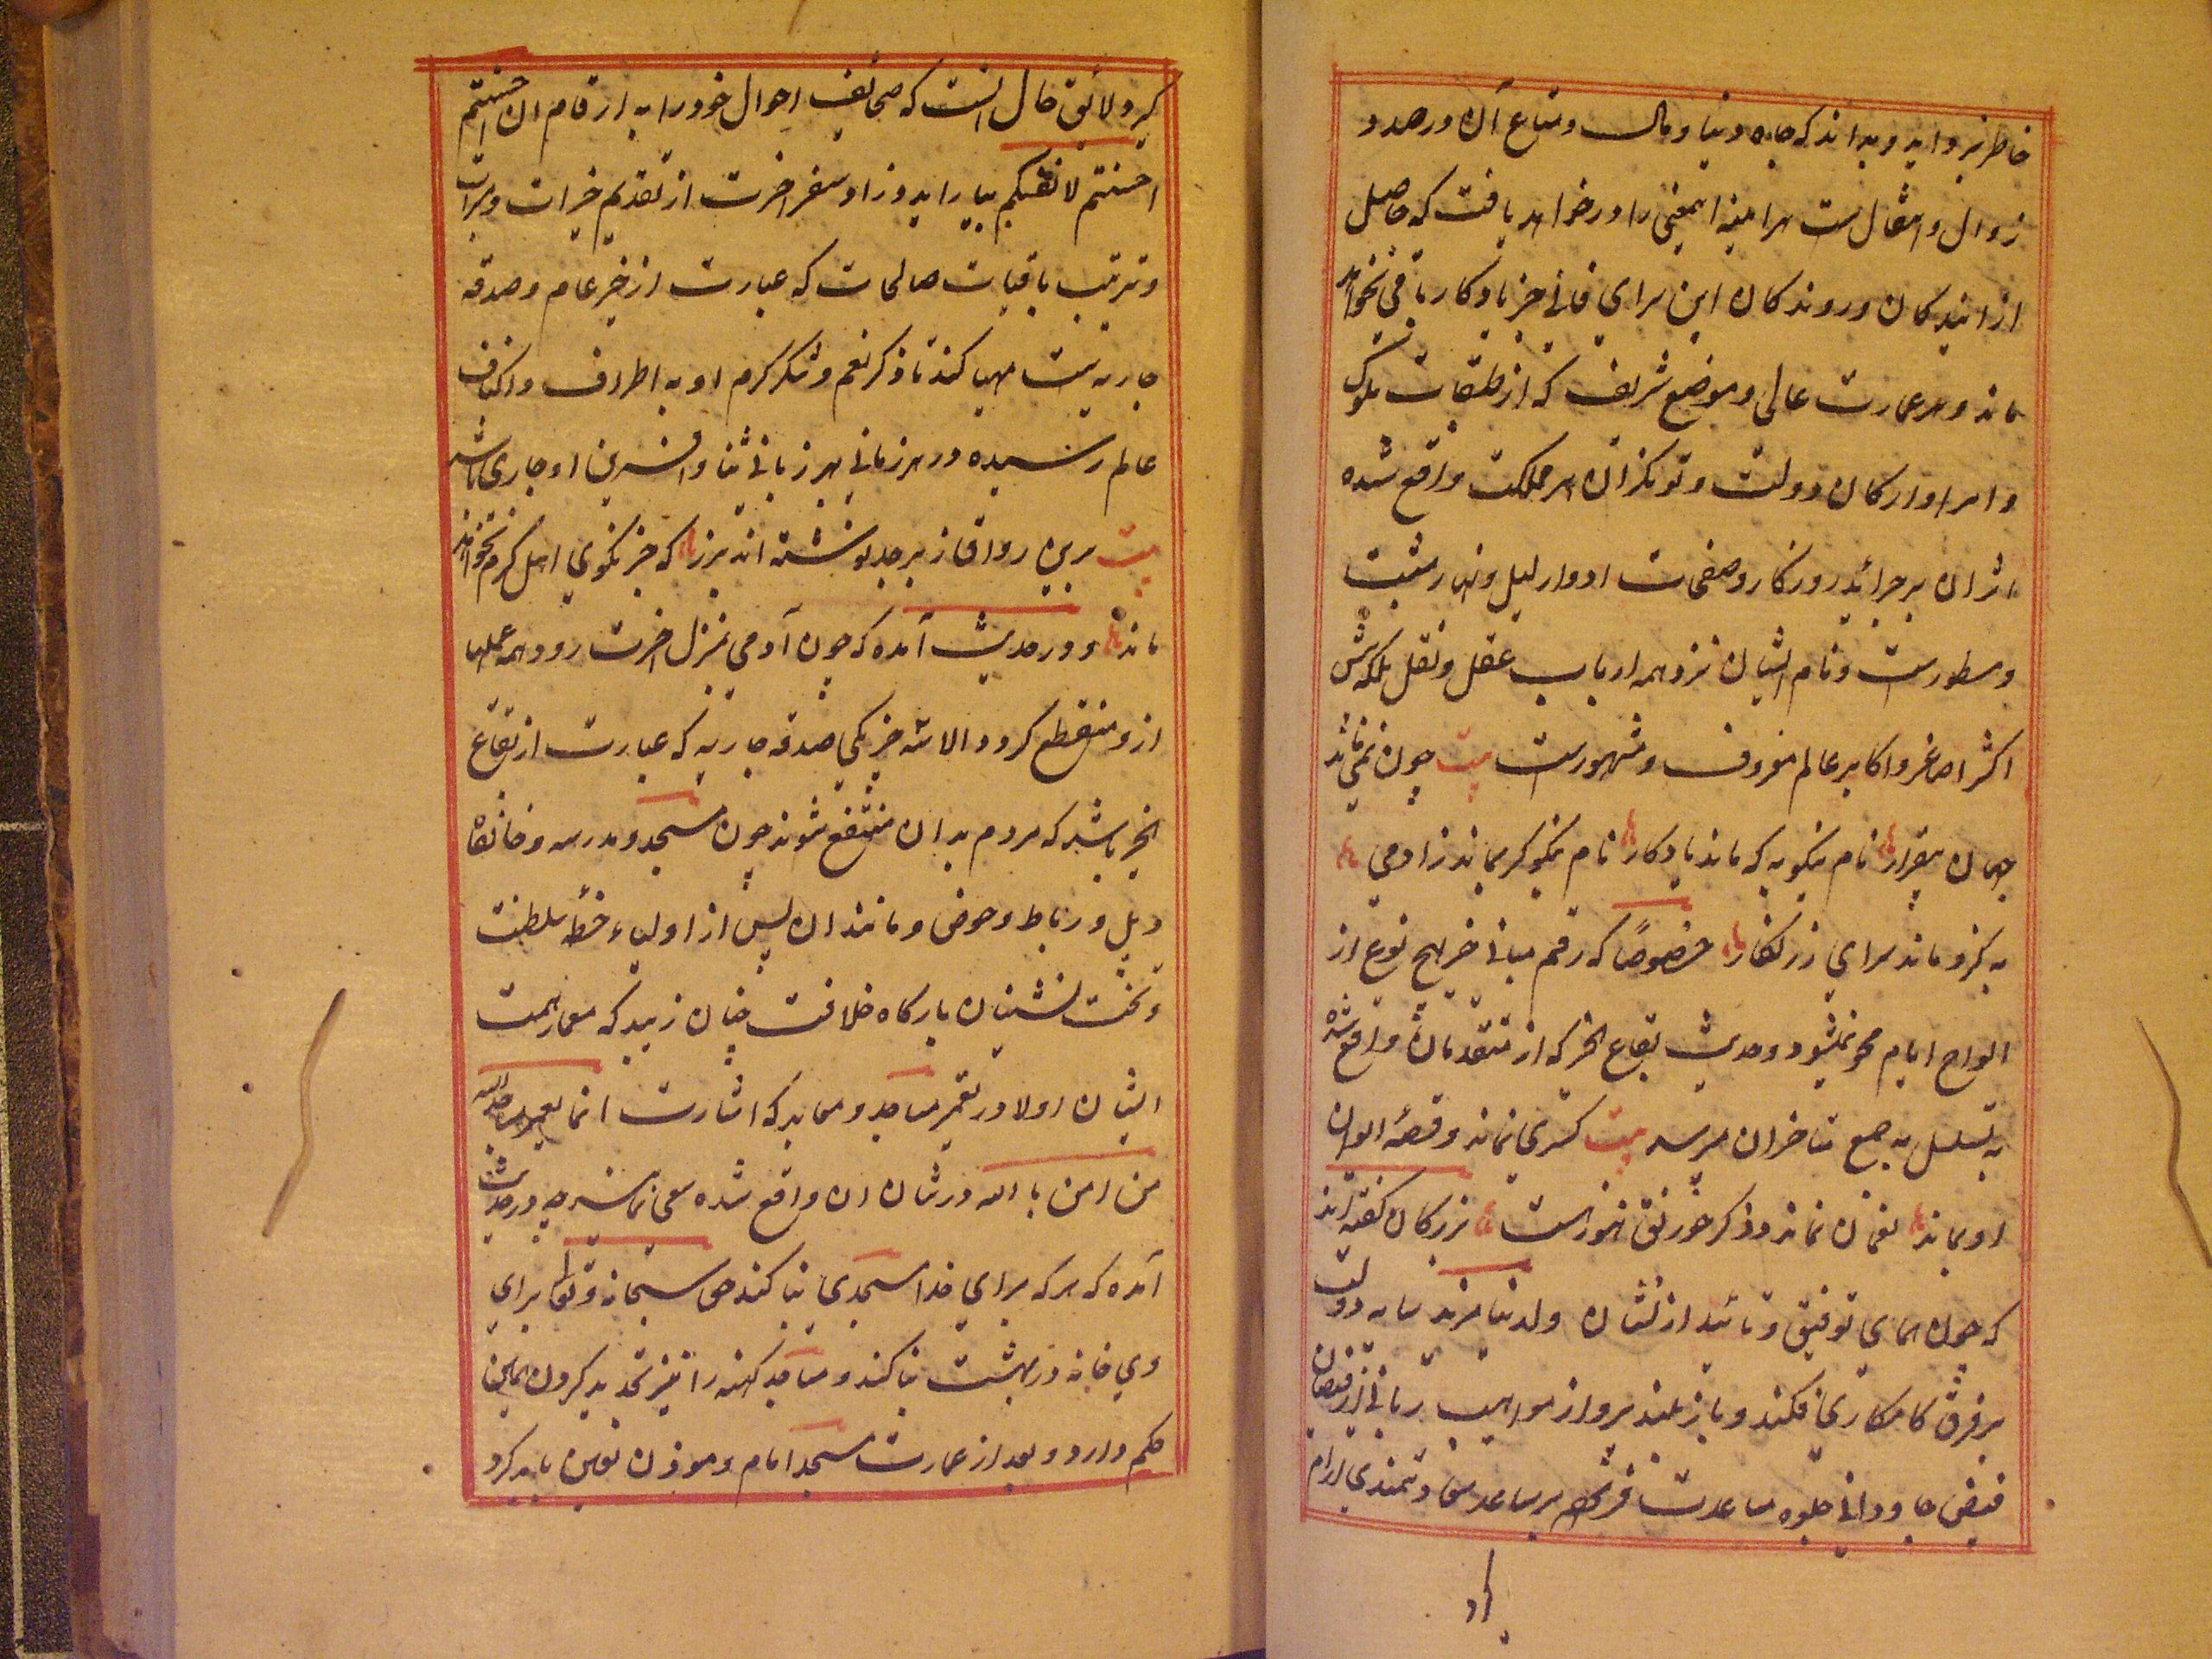 خاطر بزداید و بداند که جاه دنیا و مال و متاع آن در صدد
زوال و انتقال ست هر آینه اینمعنی را در خواهد یافت که حاصل
از آیندکان و روندکان این سرای فانی جز یادکار باقی نخواهد
ماند و هر عمارت عالی و موضع شریف که از طبقات ملوک
و امرا و ارکان دولت و توانکران هر مملکت واقع شده
اثر آن بر جرائد روزکار و صفحات ادوار لیل و نهار مثبت
و مسطورست و نام ایشان نزد همه ارباب عقل و نقل بلکه پیش
اکثر اصاغر و اکابر عالم معروف و مشهورست بیت چون نمی ماند
جهان بیقرار نام نیکو به که ماند یادکار نام نیکو کر بماند ز ادمی
به کزو ماند سرای زرنکار خصوصًا که رقم مبانی خیر بهیچ نوع از
الواح ایام محو نمیشود و حدیث بقاع الخیر که از متقدمان واقع شده
به تسلسل به جمع متاخران میرسد بیت کسری نماند و قصهٔ ایوان
او بماند نعمان نماند و ذکر خورنق هنوز هست بزرکان کفته اند
که چون همای توفیق و تائید از نشان ولدنیا مزید سایه دولت
بر فرق کامکاری افکند و باز بلند پرواز مواهب ربانی از فیضان
فیض جاودانی جلوه مساعدت فرماید بر ساعد سعادتمندی ارام
کیرد لائق حال انست که صحائف احوال خود را به ارقام ان احسنتم
احسنتم لانفسکم بیاراید و زاد سفر اخرت از تقدیم خیرات و مبرات
و ترتیب باقیات صالحات که عبارت از خیر عام و صدقه
جاریه است مهیا کند تا ذکر نعم و شکر کرم او به اطراف و اکناف
عالم رسیده در هر زمانی بهر زبانی ثنا و افسرین او جاری باشد
بیت برین رواق زبرجد نوشته اند بزر که جز نکوی اهل کرم نخواهد
ماند و در حدیث آمده که چون آدمی بمنزل اخرت رود همه عملها
ازو منقطع کردد الا سه چیز یکی صدقه جاریه که عبارت از بقاع
الخیر باشد که مردم بدان منتفع شوند چون مسجد و مدرسه و خانقاه
و پل و رباط و حوض و مانند ان پس از اولیاء خطه سلطنت
و تخت نشینان بارکاه خلافت چنان زیبد که معمار همت
ایشان اولا در تعمیر مساجد و معابد که اشارت انما یعمر مساجد الله
من امن بالله در شان ان واقع شده سعی نماید چه در حدیث
آمده که هر که برای خدا مسجدی بنا کند حق سبحانه و تعالی برای
وی خانه در بهشت بنا کند و مساجد کهنه را نیز تجدید کردن همین
حکم دارد و بعد از عمارت مسجد امام و موذن تعین باید کرد